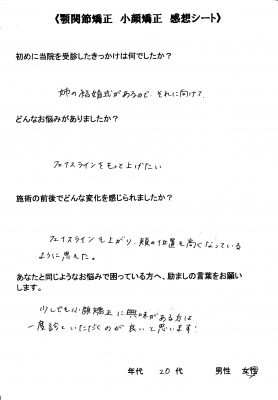 《顎関節矯正 小顔矯正 感想シート》
初めに当院を受診したきっかけは何でしたか？
姉の結婚式があるので、それに向けて。
どんなお悩みがありましたか？
フェイスラインをもっと上げたい
施術の前後でどんな変化を感じられましたか？
フェイスラインも上がり、頬の位置も高くなっている
ように思えた。
あなたと同じようなお悩みで困っている方へ、励ましの言葉をお願い
します。
少しでも小顔矯正に興味がある方は
一度診ていただくのが良いと思います！
年代 20 代 男性 女性